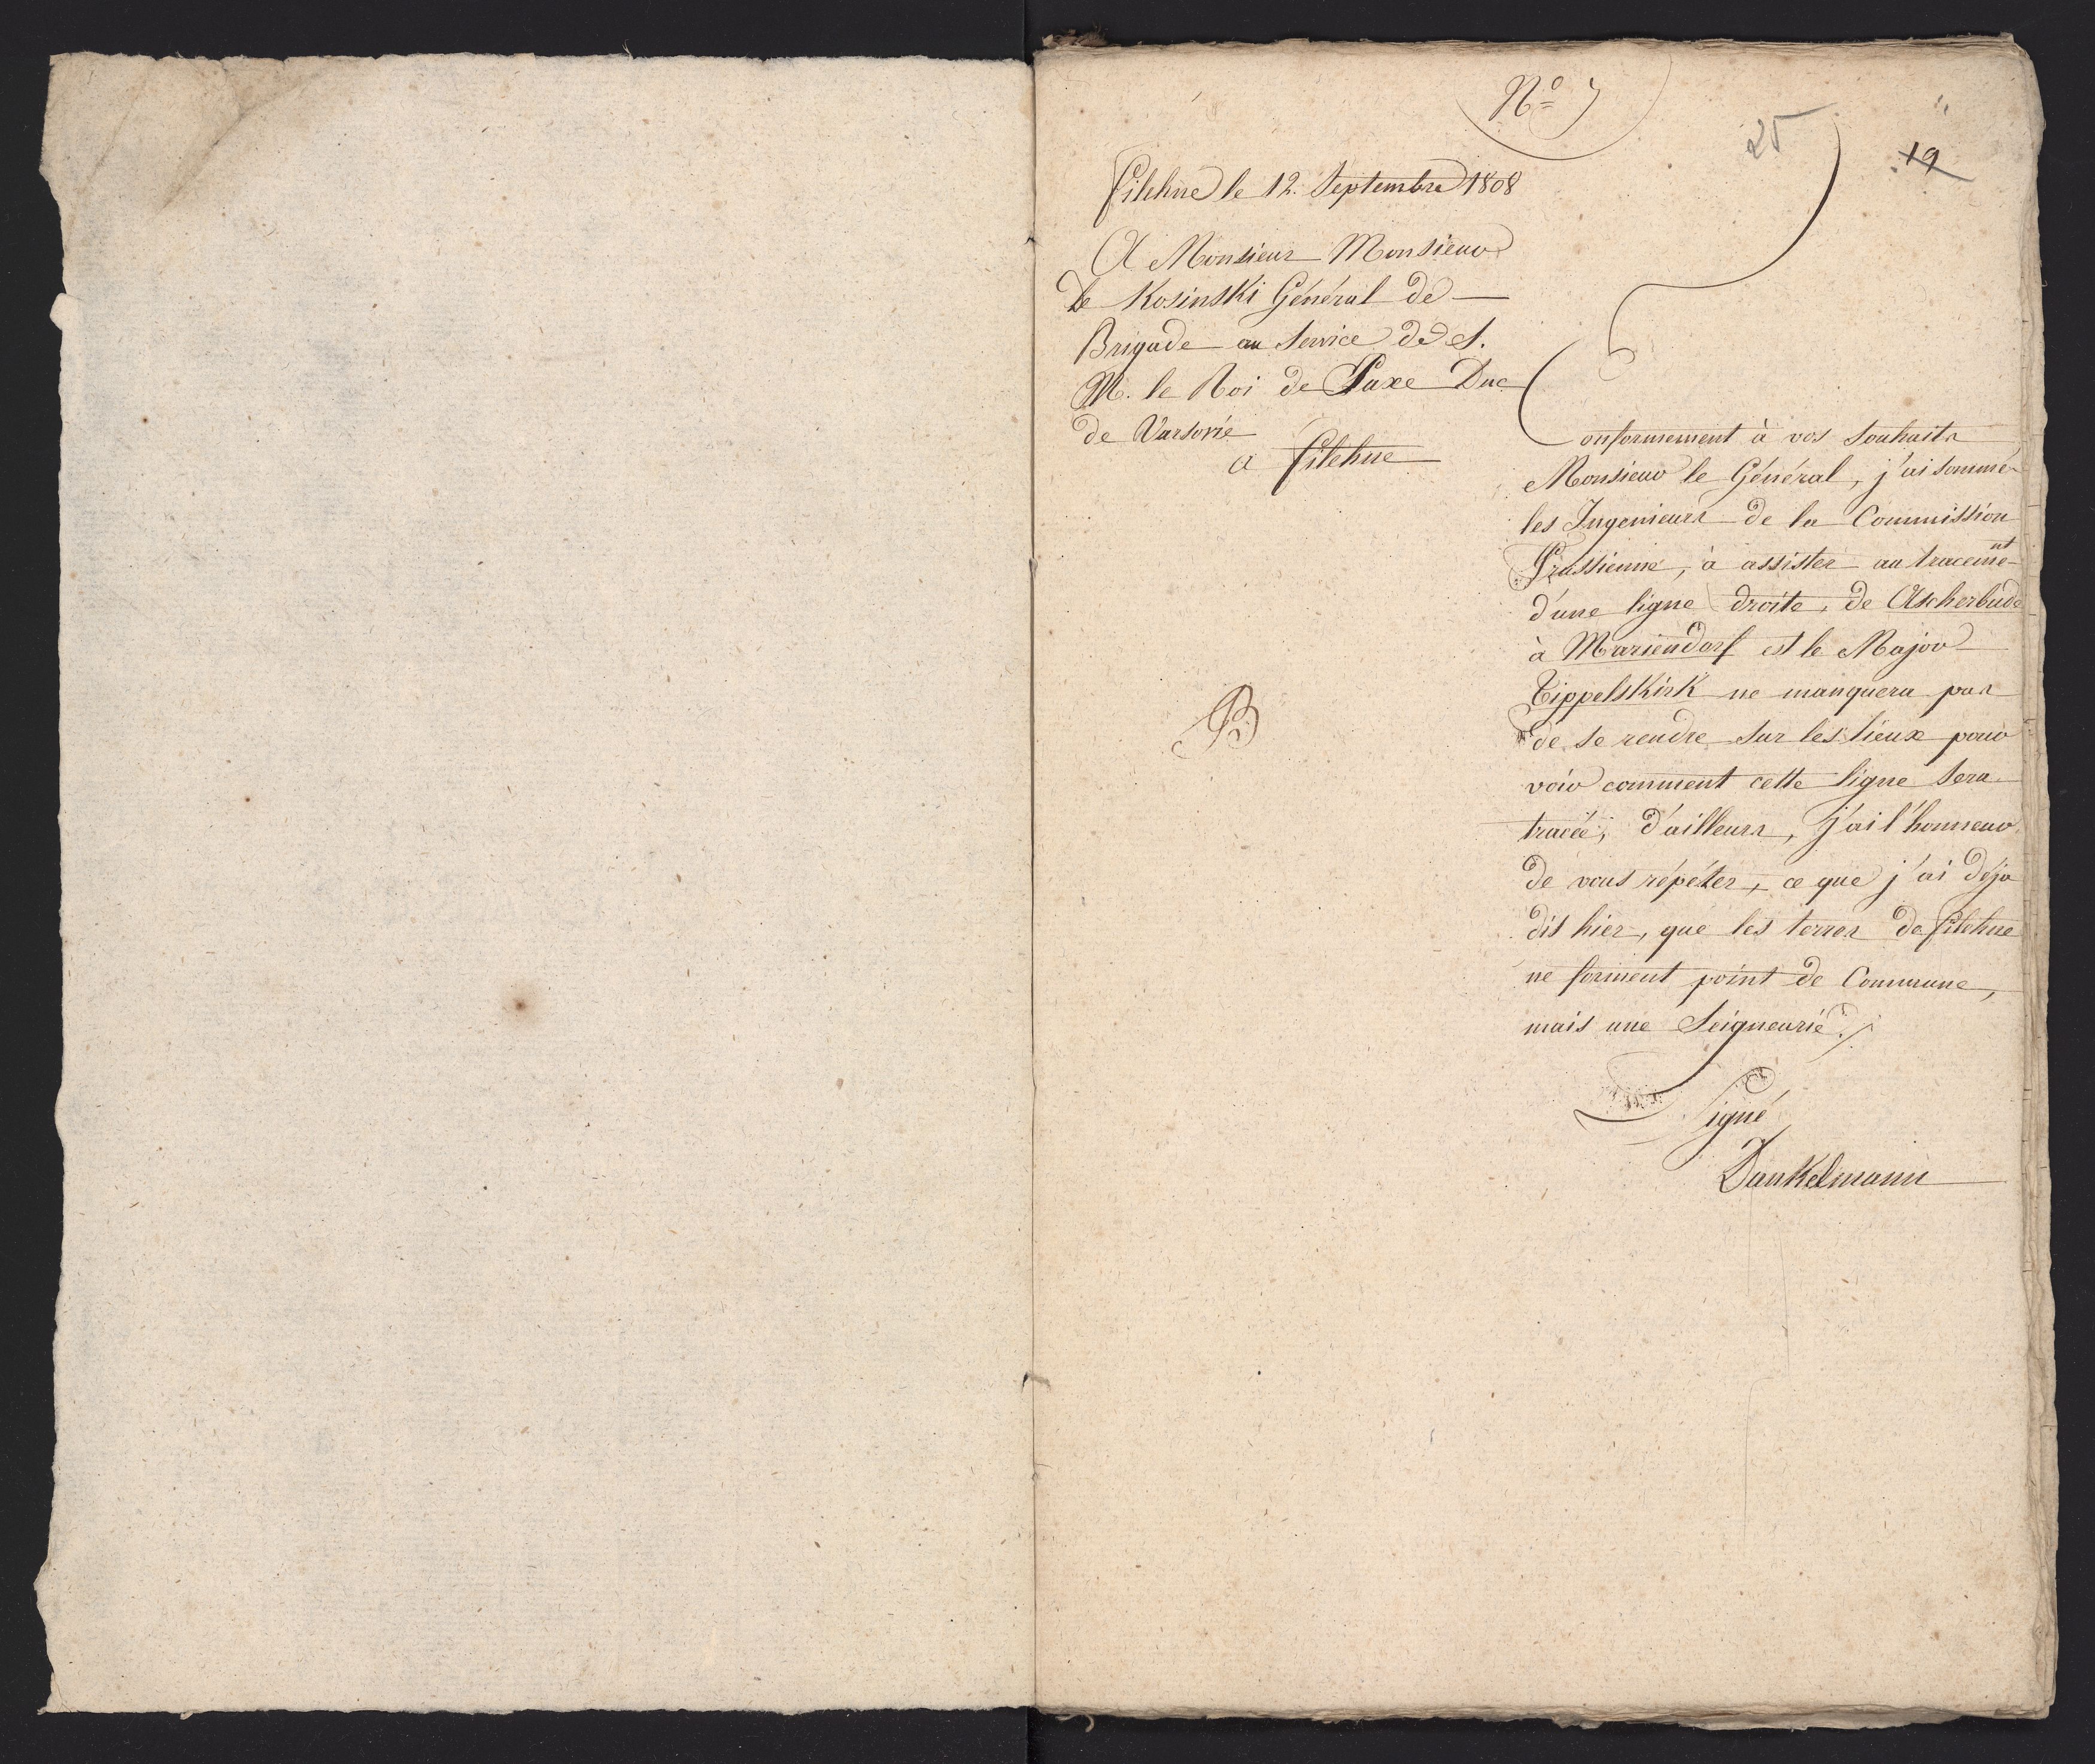 Nº 7
25
19
Filehne le 12. Septembre 1808
A Monsieur Monsieur
De Kosinski Général de
Brigade au Service de S.
M. le Roi de Saxe Duc
de Varsovie
a Filehne
Conformement à vos souhaits
Monsieur le Général, j'ai sommé
les Ingenieurs de la Commission
Prussienne, à assister au tracemeⁿᵗ
d'une ligne droite, de Ascherbude
à Mariendorf et le Major
Tippelskirk ne manquera pas
de se rendre sur les lieux pour
voir comment cette ligne sera
tracée, d'ailleurs, j'ai l'honneur
de vous répéter, ce que j'ai déja
dit hier, que les terres de Filehne
ne forment point de Commune,
mais une Seigneurie./.
Signé
Dankelmann